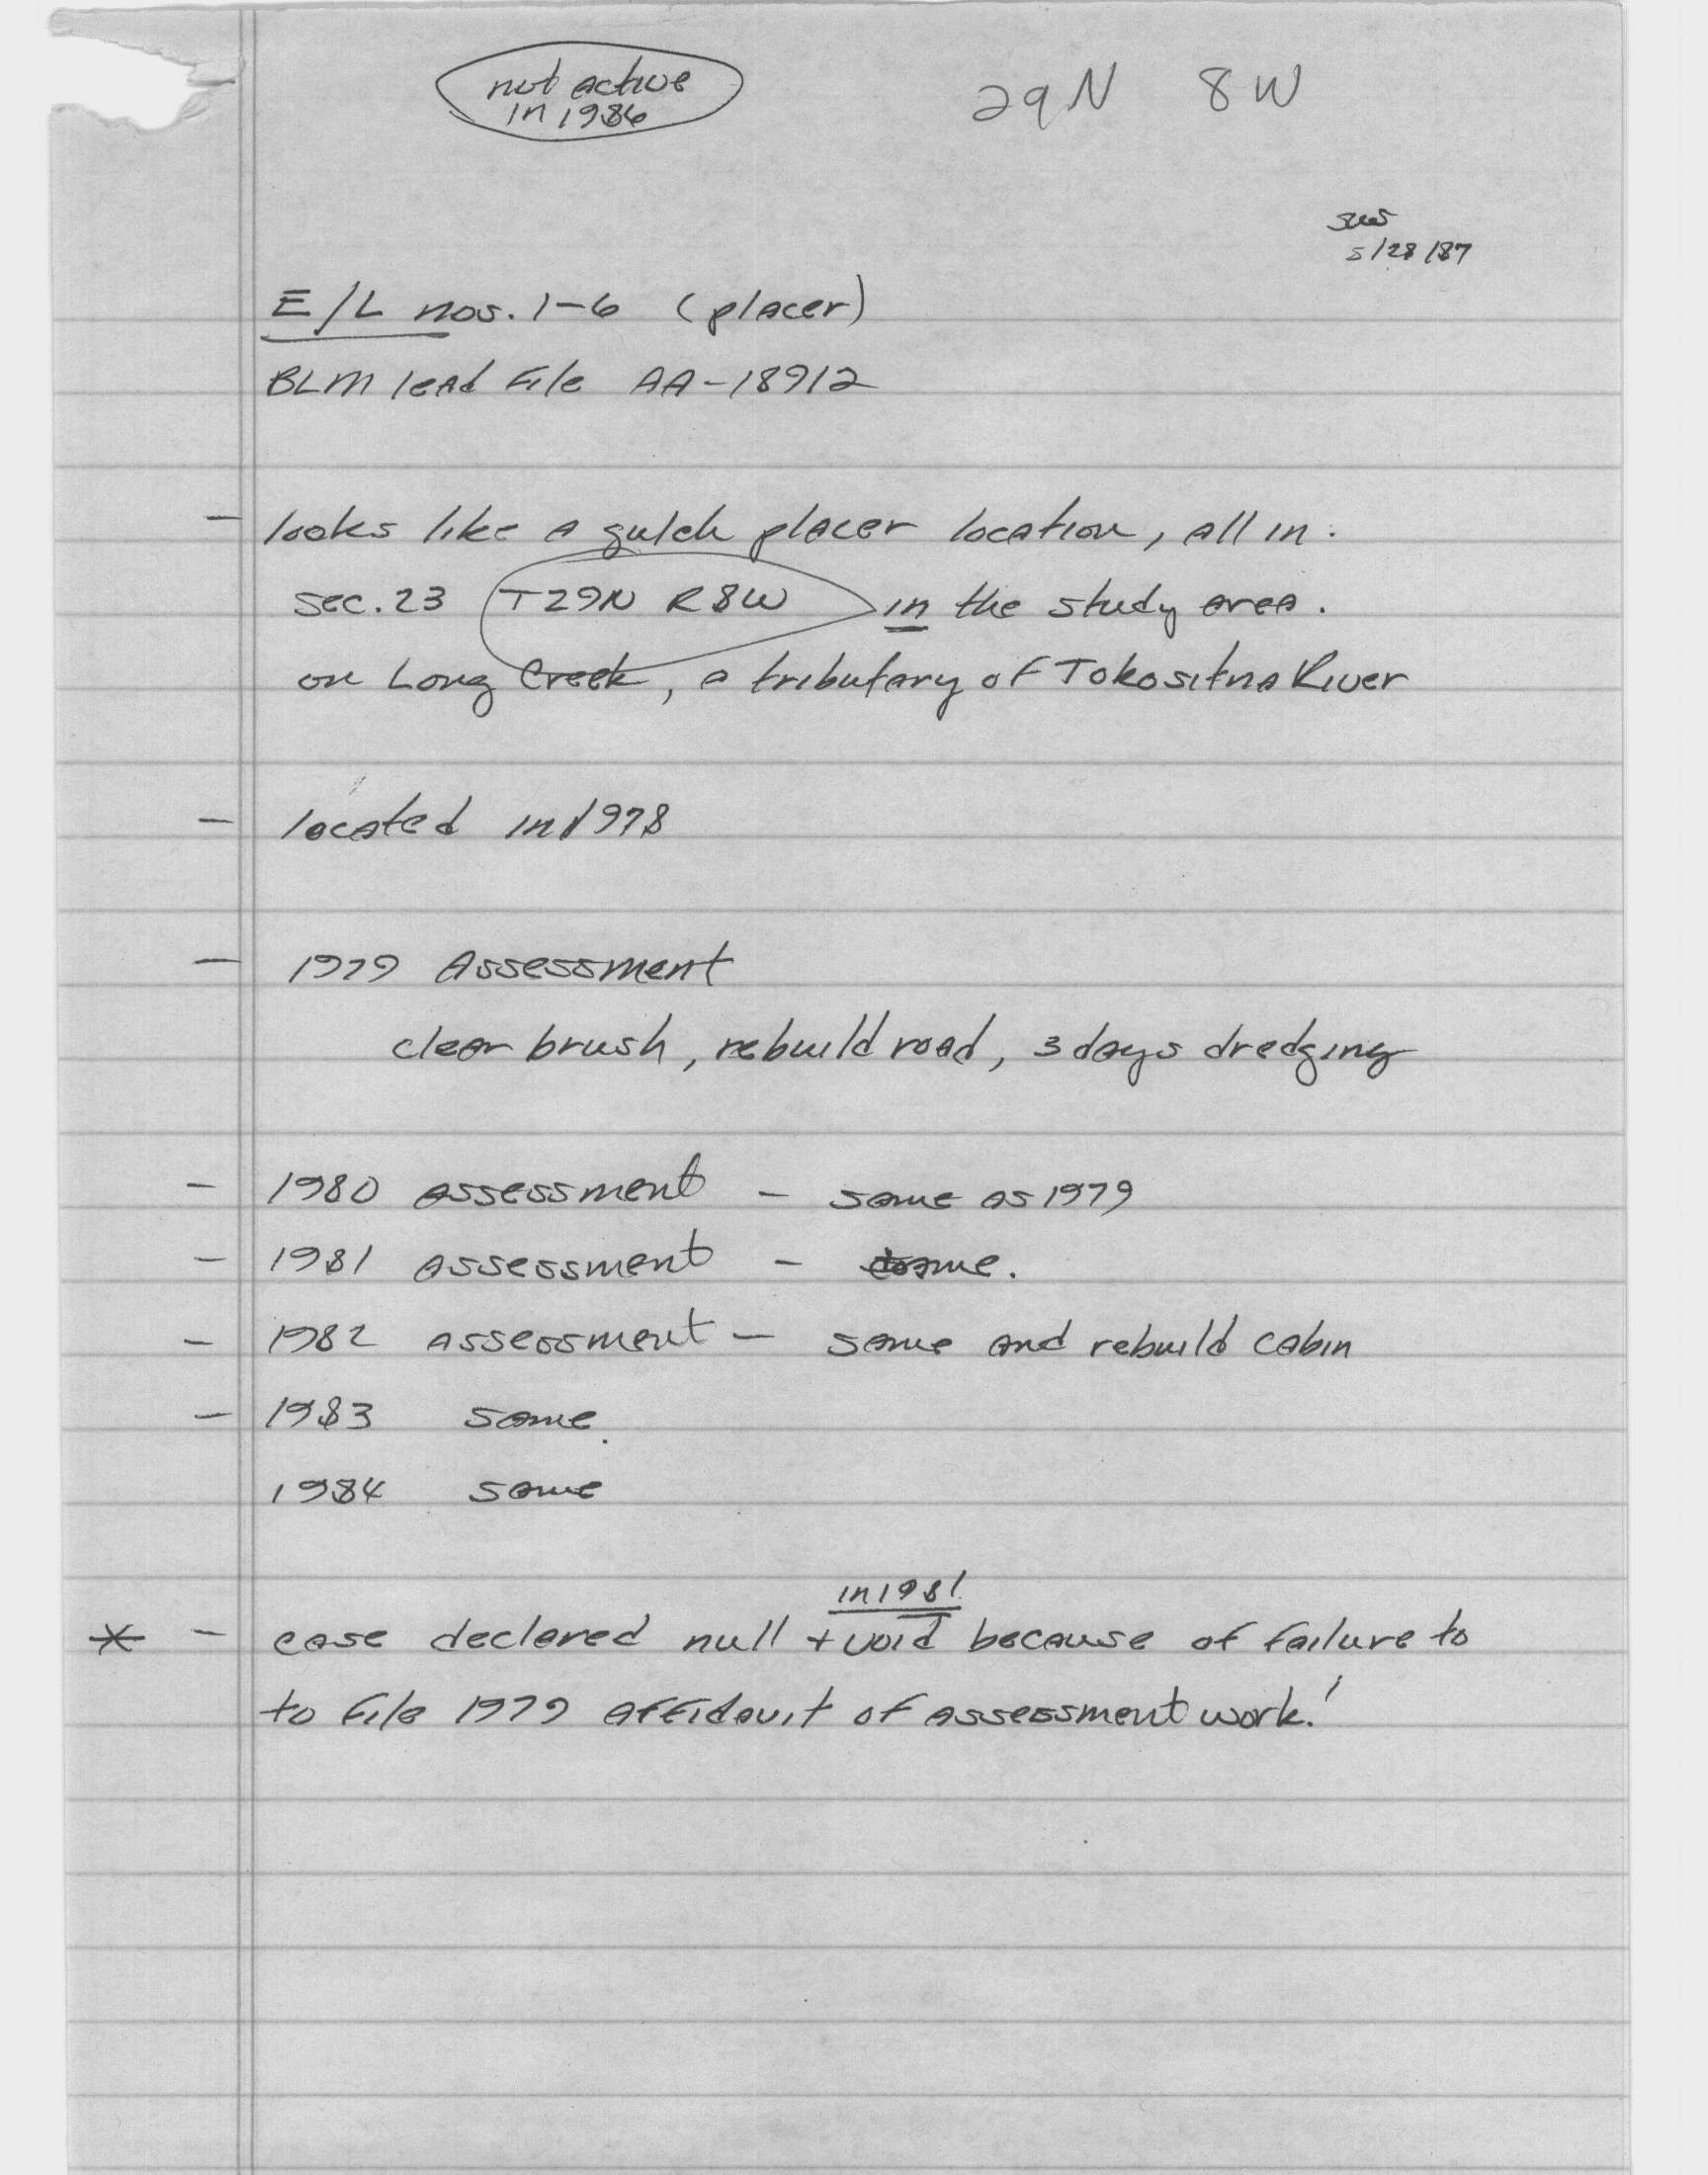 not active
in 1986
29N 8W
5/28/87
E/L nos. 1-6 (placer)
BLM lead file AA-18912
- looks like a gulch placer location, all in.
sec. 23 T29N R8W in the study area.
on Long Creek, a tributary of Tokositna River
- located in 1978
- 1979 Assessment
clear brush, rebuild road, 3 days dredging
- 1980 assessment - same as 1979
- 1981 assessment - same.
- 1982 assessment - same and rebuild cabin
- 1983 same.
1984 same
in 1981
* - case declared null + void because of failure to
to file 1979 affidavit of assessment work!